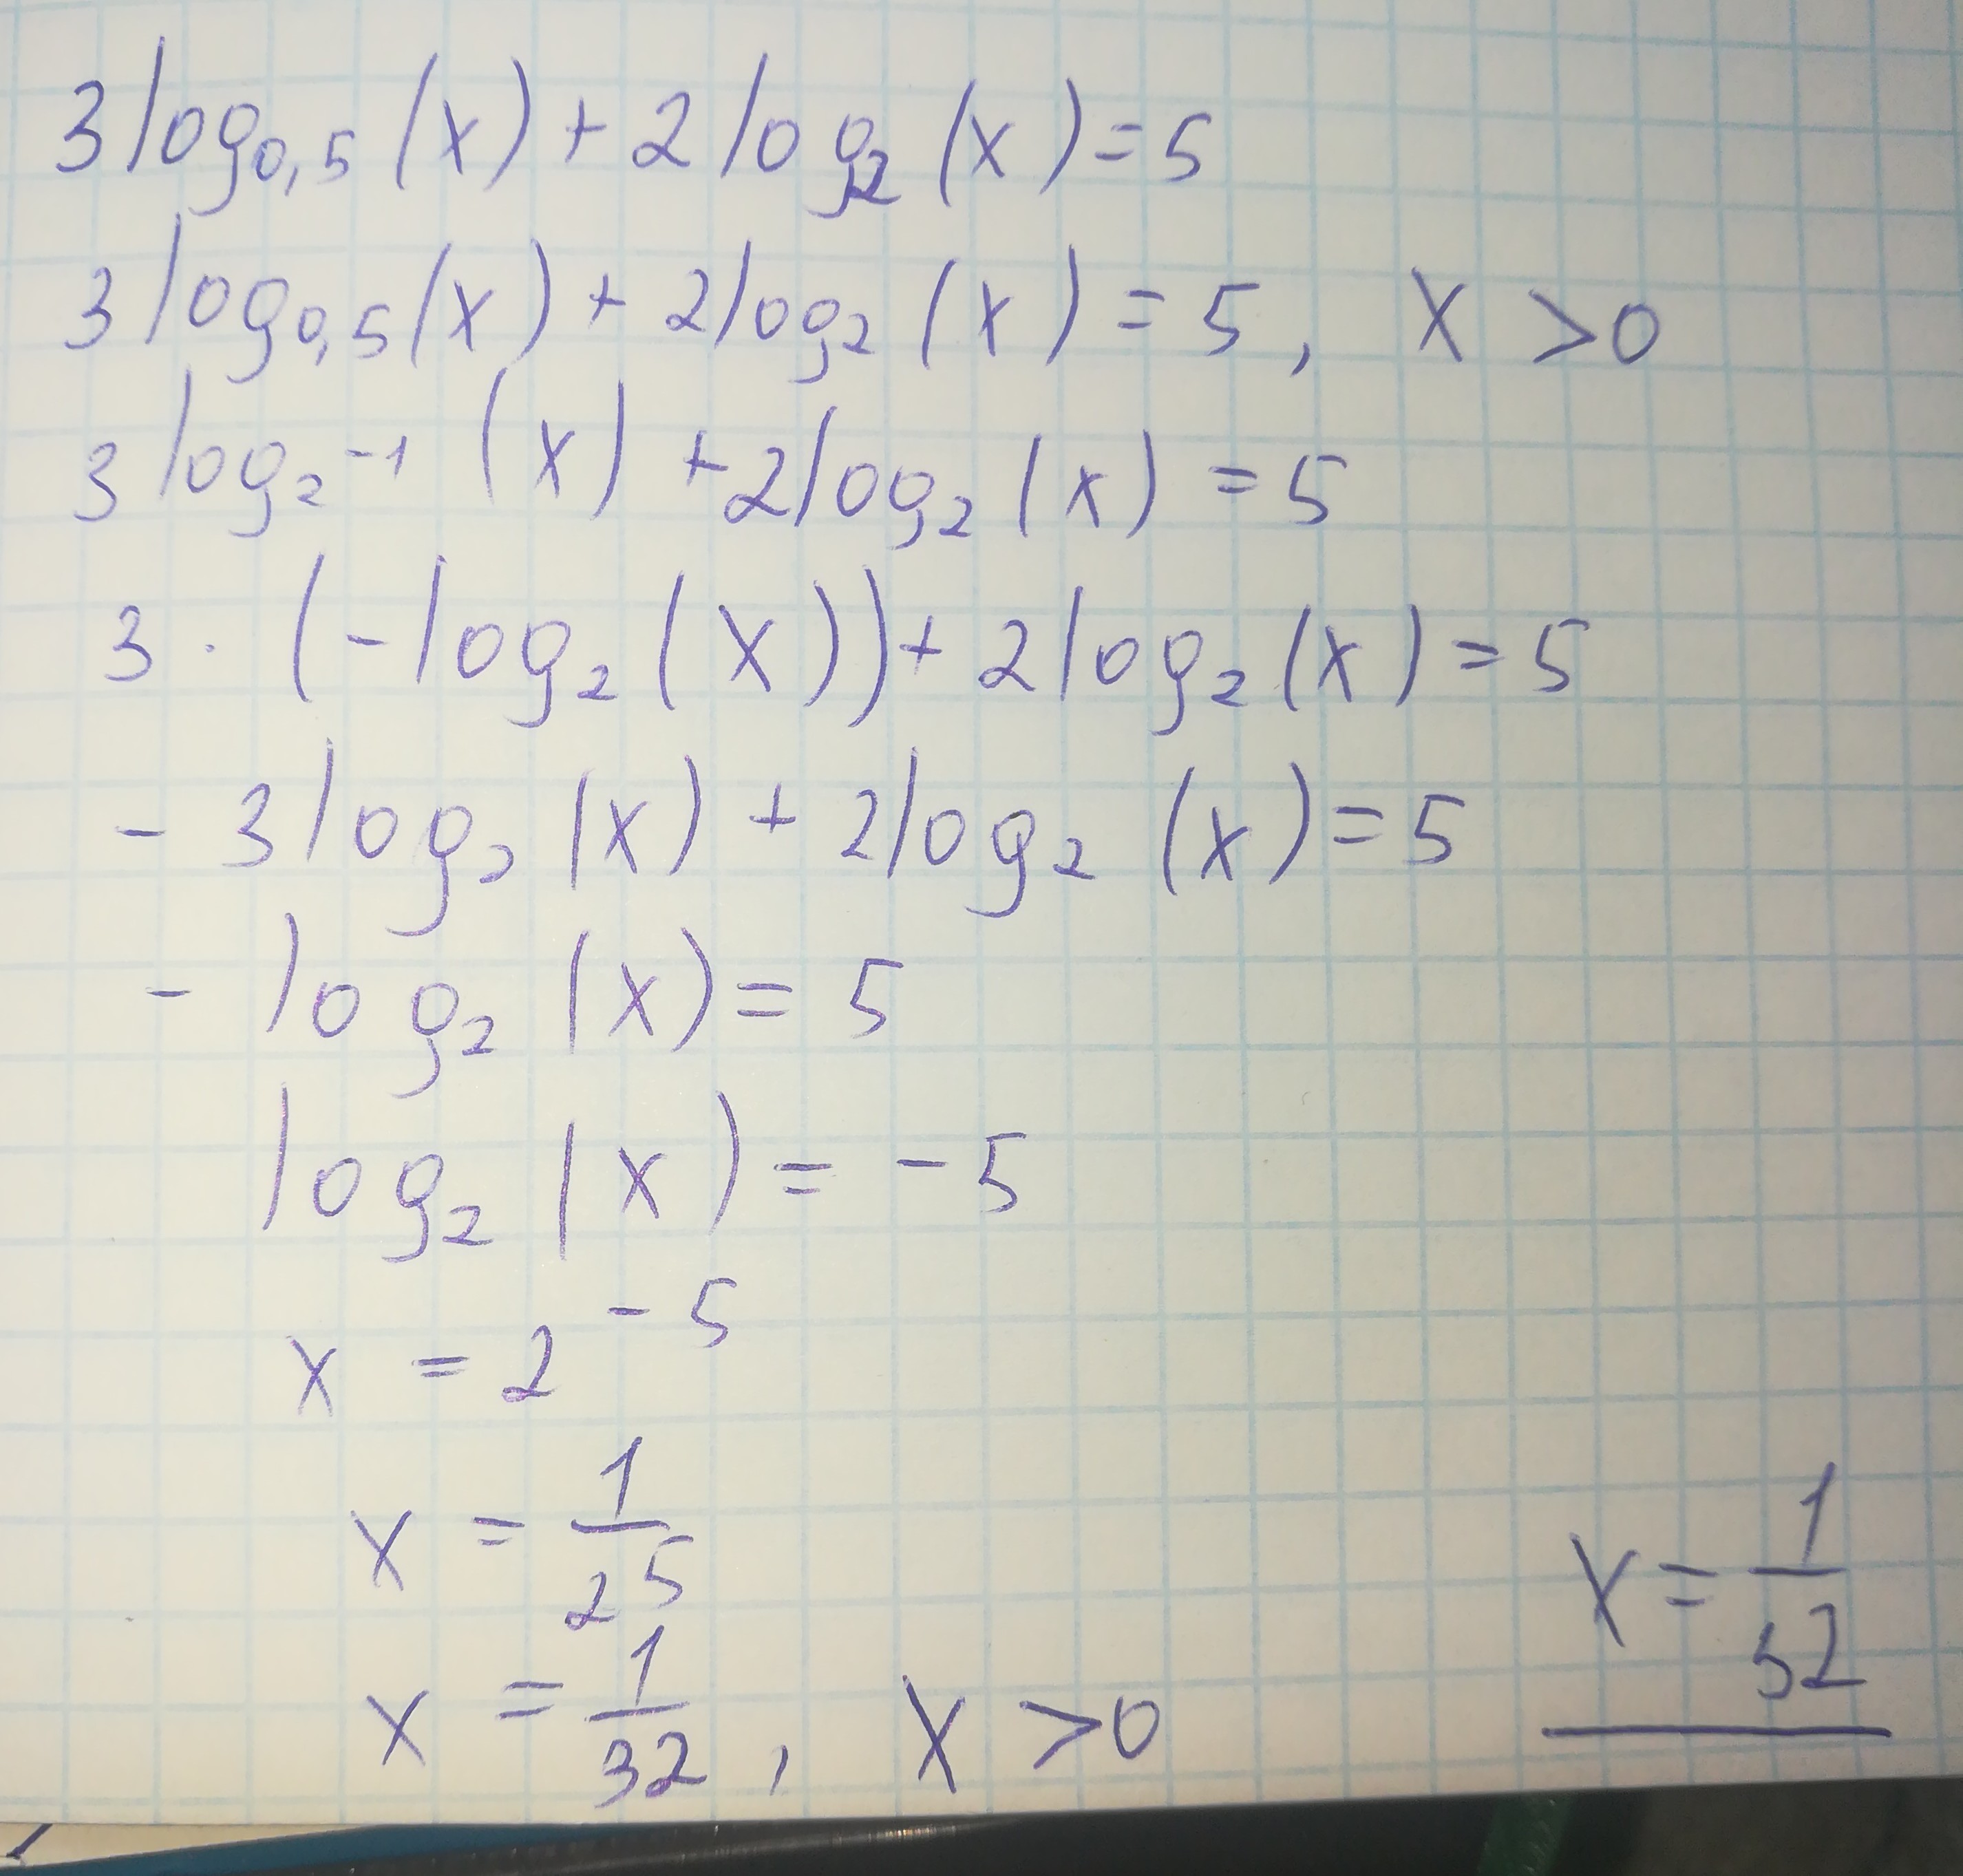 3 log₀,₅ (x) + 2 log₂ (x) = 5
3 log₀,₅ (x) + 2 log₂ (x) = 5, x > 0
3 log₂⁻¹ (x) + 2 log₂ (x) = 5
3 · (-log₂ (x)) + 2 log₂ (x) = 5
- 3 log₂ (x) + 2 log₂ (x) = 5
- log₂ (x) = 5
log₂ (x) = -5
x = 2⁻⁵
x = 1/2⁵
x = 1/32, x > 0
x = 1/32